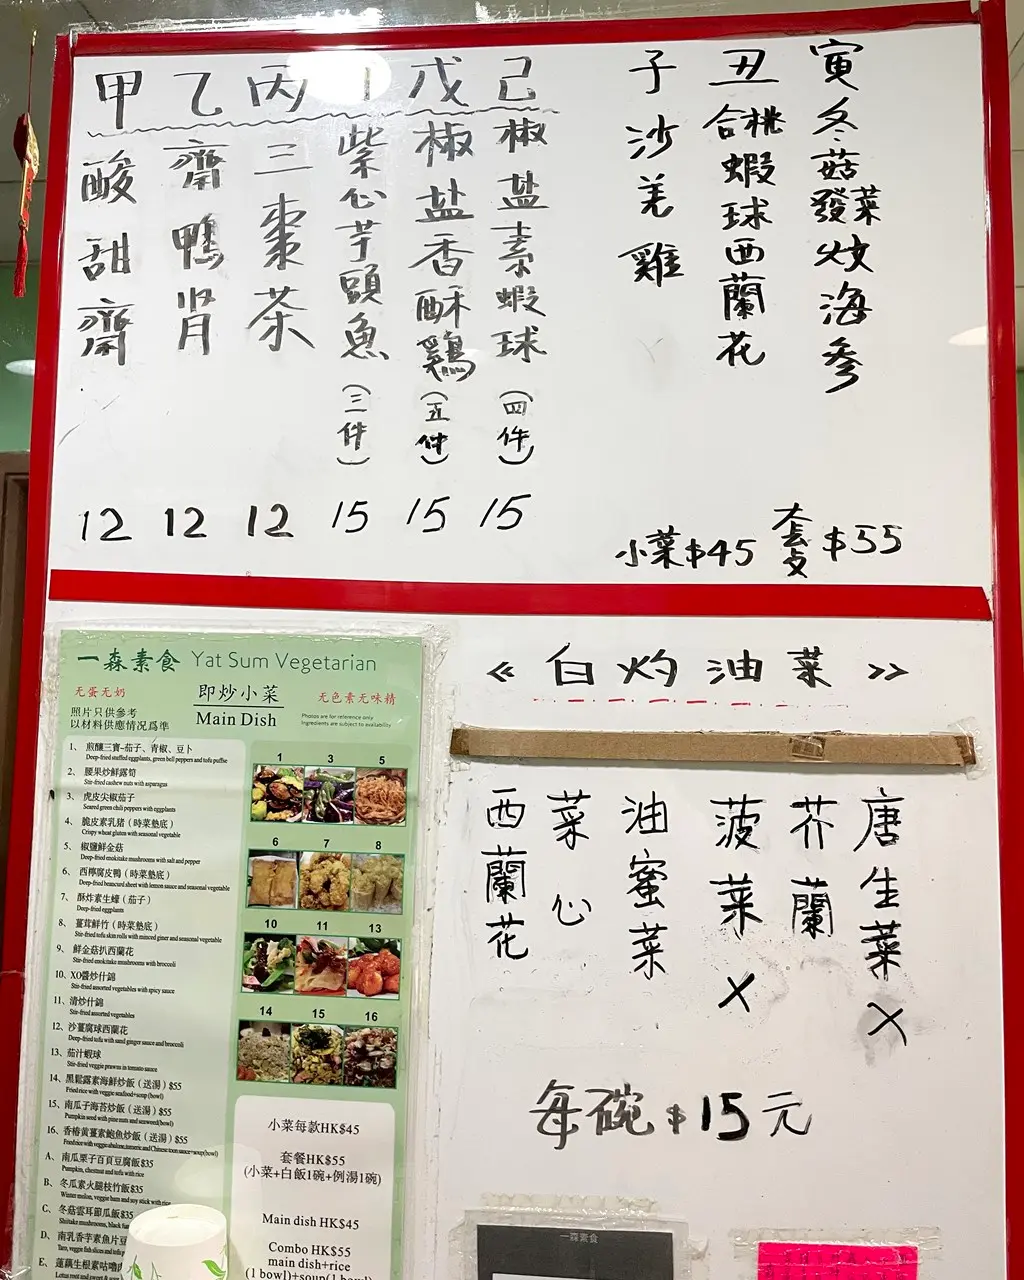 甲 酸甜齋 12
乙 齋鴨肾 12
丙 三棗茶 12
丁 紫心芋頭魚(三件) 15
戊 椒盐香酥鷄(五件) 15
己 椒盐素蝦球(四件) 15
子 沙羌雞
丑 合桃蝦球西蘭花
寅 冬菇發菜炆海參
小菜$45 套歺$55
一森素食 Yat Sum Vegetarian
无蛋无奶
即炒小菜
无色素无味精
Main Dish
照片只供參考
以材料供應情况爲準
Photos are for reference only
Ingredients are subject to availability
1、煎釀三寶-茄子、青椒、豆卜
Deep-fried stuffed eggplants, green bell peppers and tofu puffie
2、腰果炒鮮露筍
Stir-fried cashew nuts with asparagus
3、虎皮尖椒茄子
Seared green chili peppers with eggplants
4、脆皮素乳猪（時菜墊底）
Crispy wheat gluten with seasonal vegetable
5、椒鹽鮮金菇
Deep-fried enokitake mushrooms with salt and pepper
6、西檸腐皮鴨（時菜墊底）
Deep-fried beancurd sheet with lemon sauce and seasonal vegetable
7、酥炸素生蠔（茄子）
Deep-fried eggplants
8、薑茸鮮竹（時菜墊底）
Stir-fried tofu skin rolls with minced giner and seasonal vegetable
9、鮮金菇扒西蘭花
Stir-fried enokitake mushrooms with broccoli
10、XO醬炒什錦
Stir-fried assorted vegetables with spicy sauce
11、清炒什錦
Stir-fried assorted vegetables
12、沙薑腐球西蘭花
Deep-fried tofu with sand ginger sauce and broccoli
13、茄汁蝦球
Stir-fried veggie prawns in tomato sauce
14、黑鬆露素海鮮炒飯（送湯）$55
Fried rice with veggie seafood+soup (bowl)
15、南瓜子海苔炒飯（送湯）$55
Pumpkin seed with pine nuts and seaweed(bowl)
16、香椿黄薑素鮑魚炒飯（送湯）$55
Fried rice with veggie abalone, turmeric and Chinese toon sauce+soup(bowl)
A、南瓜栗子百頁豆腐飯$35
Pumpkin, chestnut and tofu with rice
B、冬瓜素火腿枝竹飯$35
Winter melon, veggie ham and soy stick with rice
C、冬菇雲耳節瓜飯$35
Shiitake mushrooms, black
D、南乳香芋素魚片豆
Taro, veggie fish slices and tofu
E、蓮藕生根素咕嚕肉
Lotus root and sweet &
1 3 5
6 7 8
10 11 13
14 15 16
小菜每款HK$45
套餐HK$55
(小菜+白飯1碗+例湯1碗)
Main dish HK$45
Combo HK$55
main dish+rice
(1 bowl)+soup(1 bowl)
« 白灼油菜 »
西蘭花
菜心
油蜜菜
菠菜 X
芥蘭
唐生菜 X
每碗$15元
一森素食